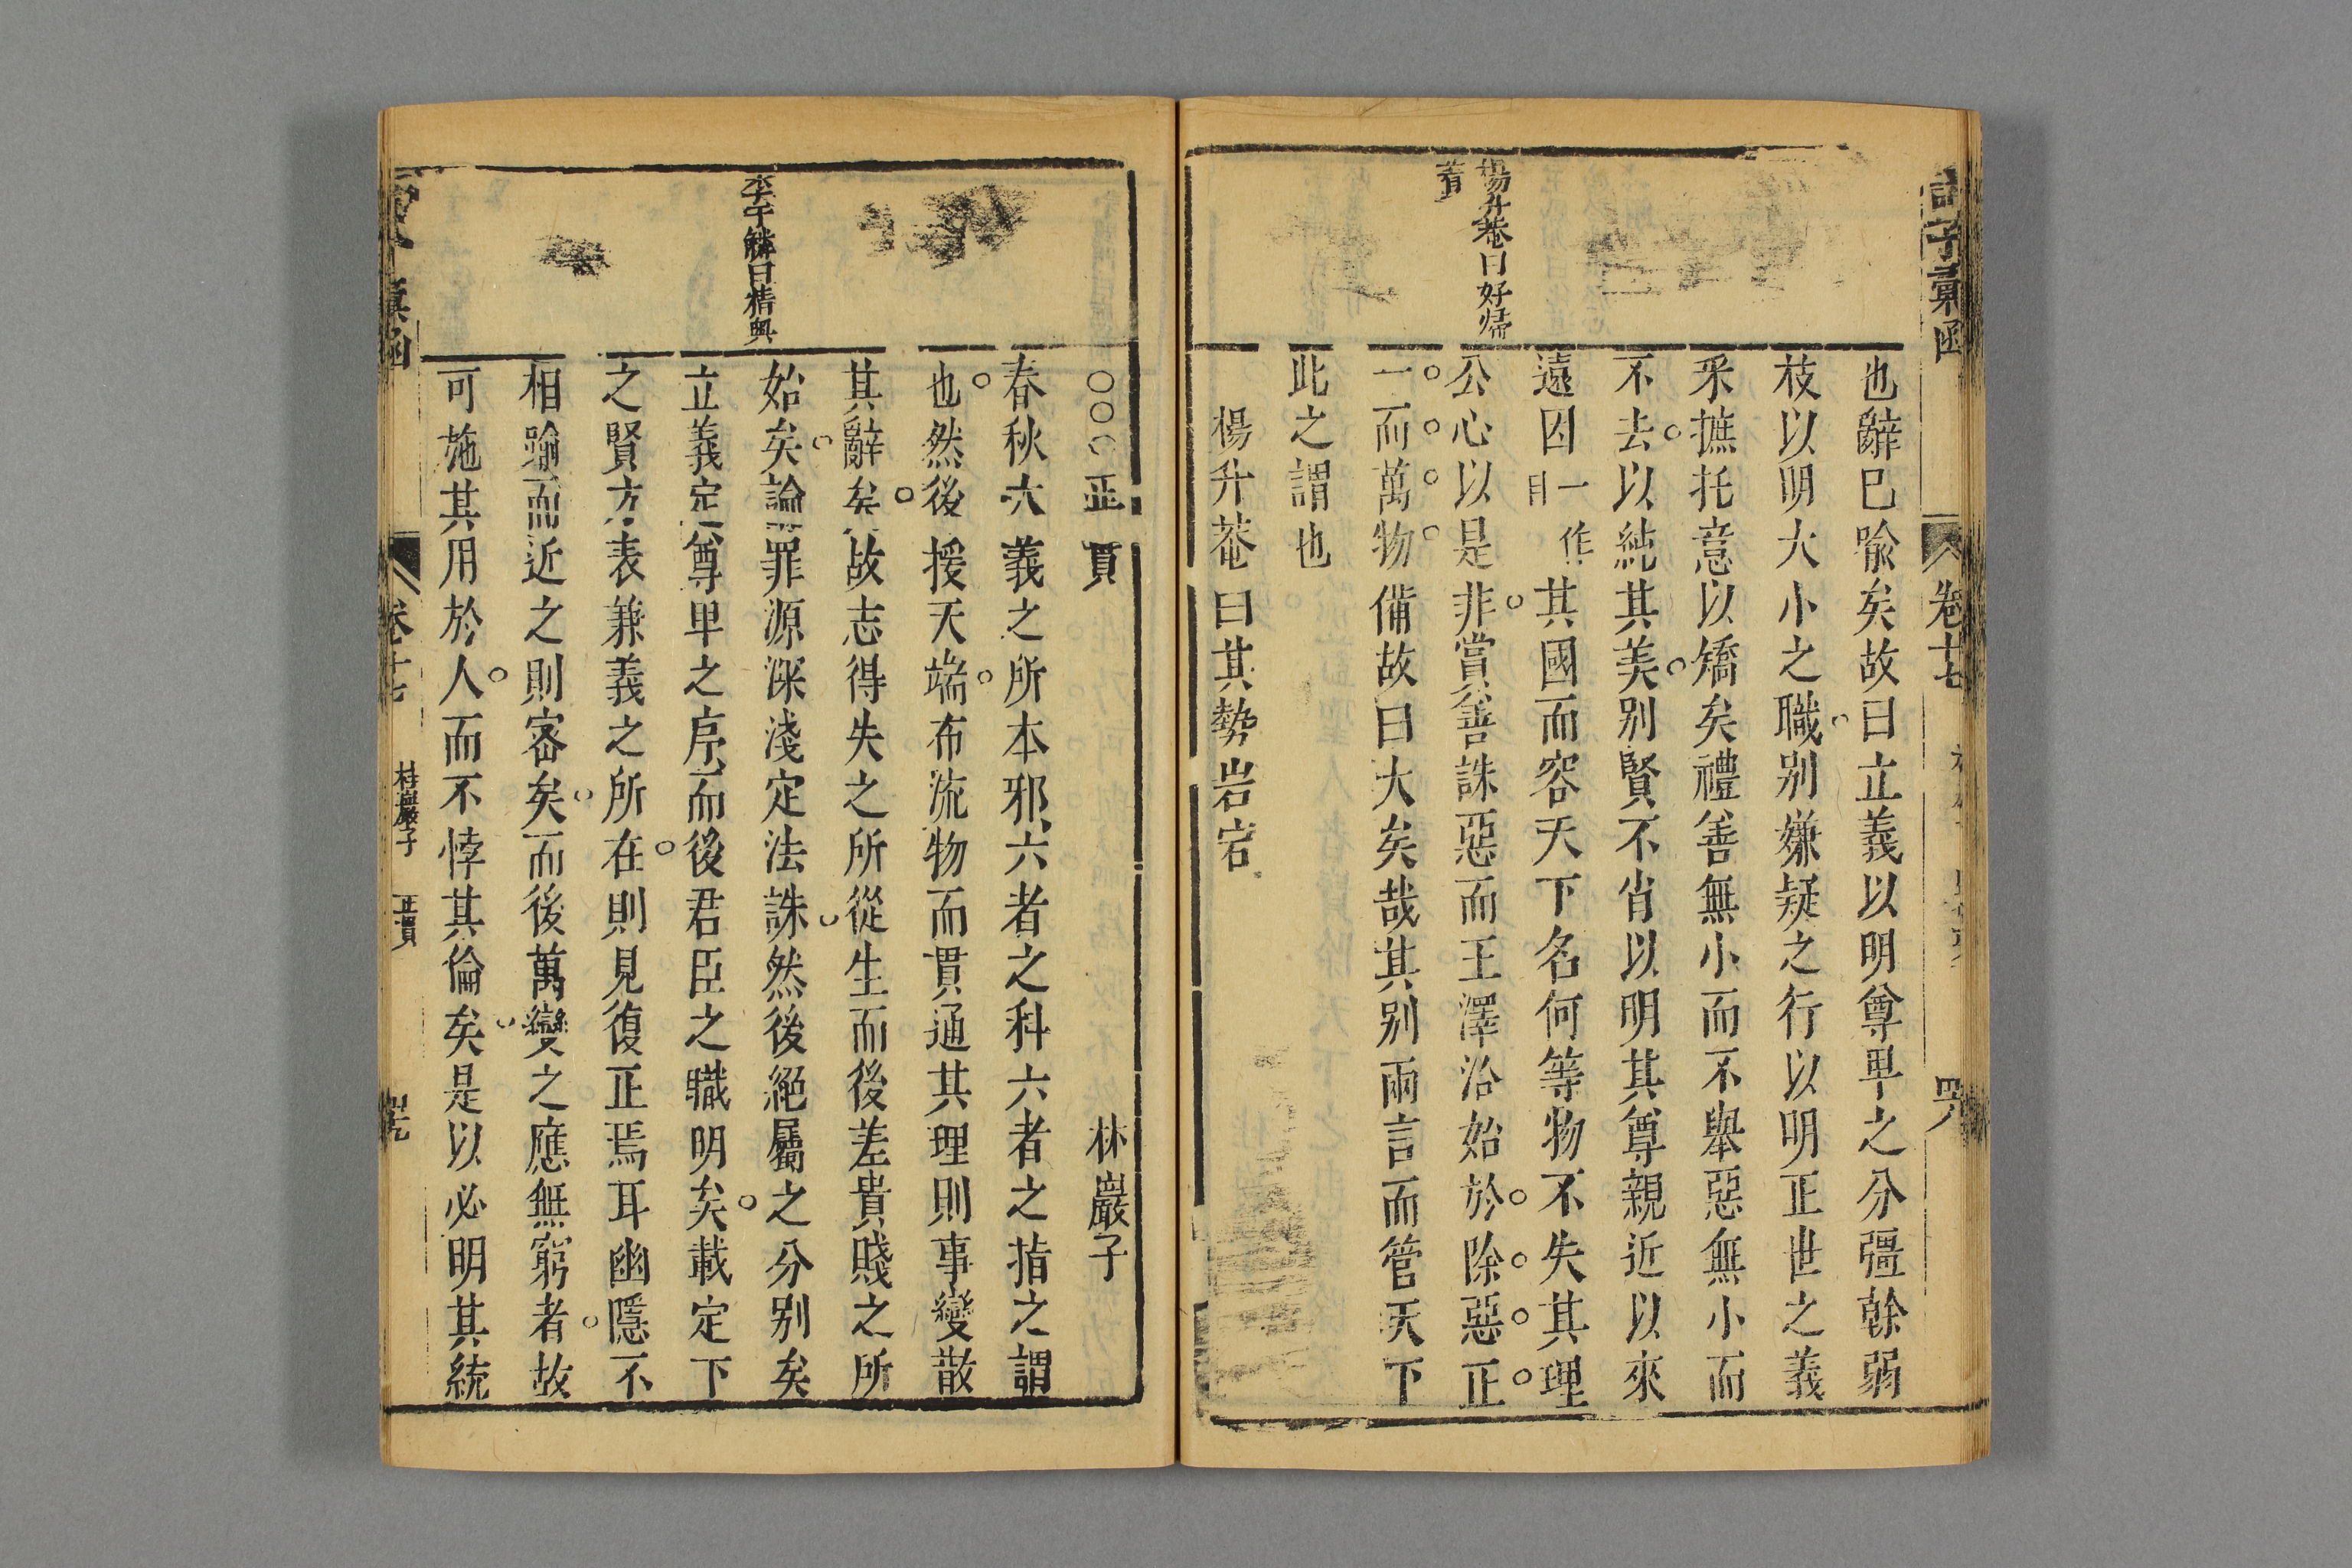 諸子彙函
卷十七
楊升菴曰好歸
着
也辭巳喩矣故曰立義以明尊卑之分彊幹弱
枝以明大小之職别嫌疑之行以明正世之義
釆摭托意以矯矣禮善無小而不舉惡無小而
不去以純其美别賢不肖以明其尊親近以來
遠因一作目其國而容天下名何等物不失其理
公心以是非賞善誅惡而王澤洽始於除惡正
一而萬物備故曰大矣哉其别兩言而管天下
此之謂也
楊升菴曰其勢岩宕
李于鱗曰精奥
○○○正貫
林巖子
春秋六義之所本邪六者之科六者之指之謂
也然後援天端布流物而貫通其理則事變散
其辭矣故志得失之所從生而後差貴賤之所
始矣論罪源深淺定法誅然後絕屬之分别矣
立義定尊卑之序而後君臣之職明矣載定下
之賢方表兼義之所在則見復正焉耳幽隱不
相踰而近之則密矣而後萬變之應無窮者故
可施其用於人而不悖其倫矣是以必明其統
彙函
卷十七
桂巖子
正貫